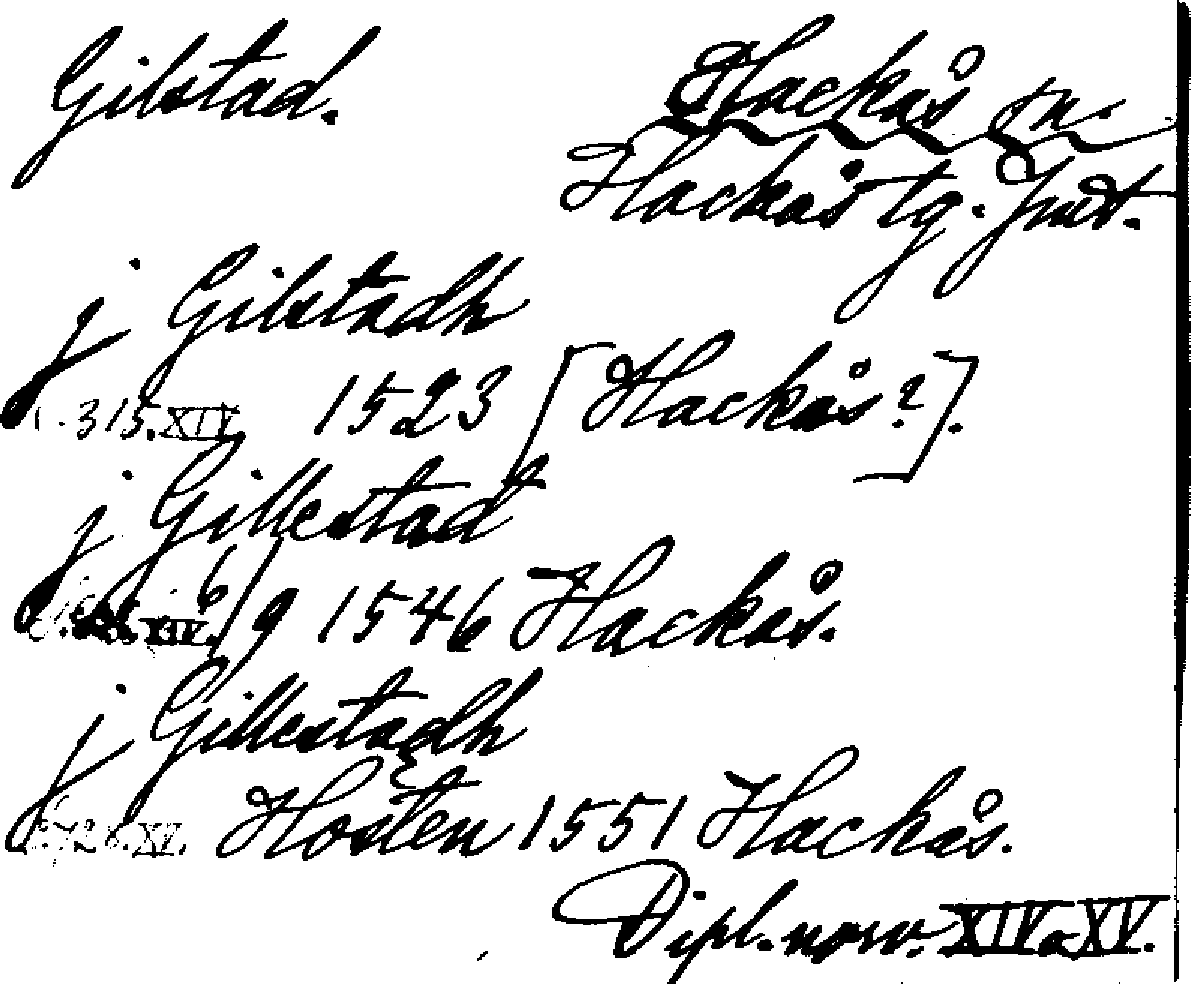 Gilstad. Hackås sn.
Hackås tg. Jmt.
j Gilstadh
s. 315. XIV 1523 [Hackås?].
j Gillestad
XIV. 6/9 1546 Hackås.
j Gillestadh
XV. Hosten 1551 Hackås.
Dipl. norv. XIV o XV.